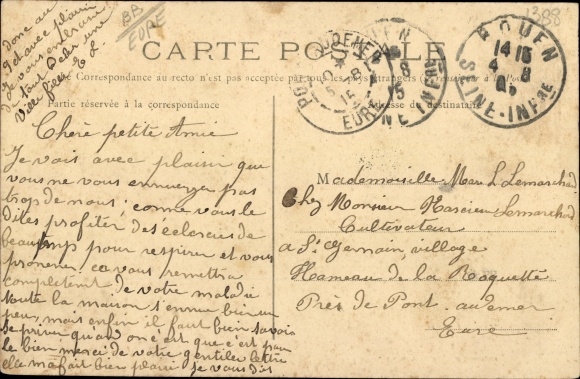 BB
EURE
1388
CARTE POSTALE
Correspondance au recto n'est pas acceptée par tous les pays étrangers
Partie réservée à la correspondance
Adresse du destinataire
ROUEN
14 15
4 8
SEINE-INFRE
EURE
Chère petite Amie
Je vois avec plaisir que
vous ne vous ennuyez pas
trop de nous; comme vous le
dites profiter des éclercies de
beau temp pour respirer et vous
promener. ca vous remettra
completment de votre maladie
toute la maison s'ennuie bien un
peu, mais enfin il faut bien savoir
se priver quand on c'est que c'est pour
le bien merci de votre gentille lettre
ela ma fait bien plaisir je vous dis
donc au
plaisir
de vous
de tout
Mademoiselle Marie L Lemarchand
Chez Monsieur Narcisse Lemarchand
Cultivateur
a St Germain, village
Hameau de la Roquette
Près de Pont. audemer
Eure